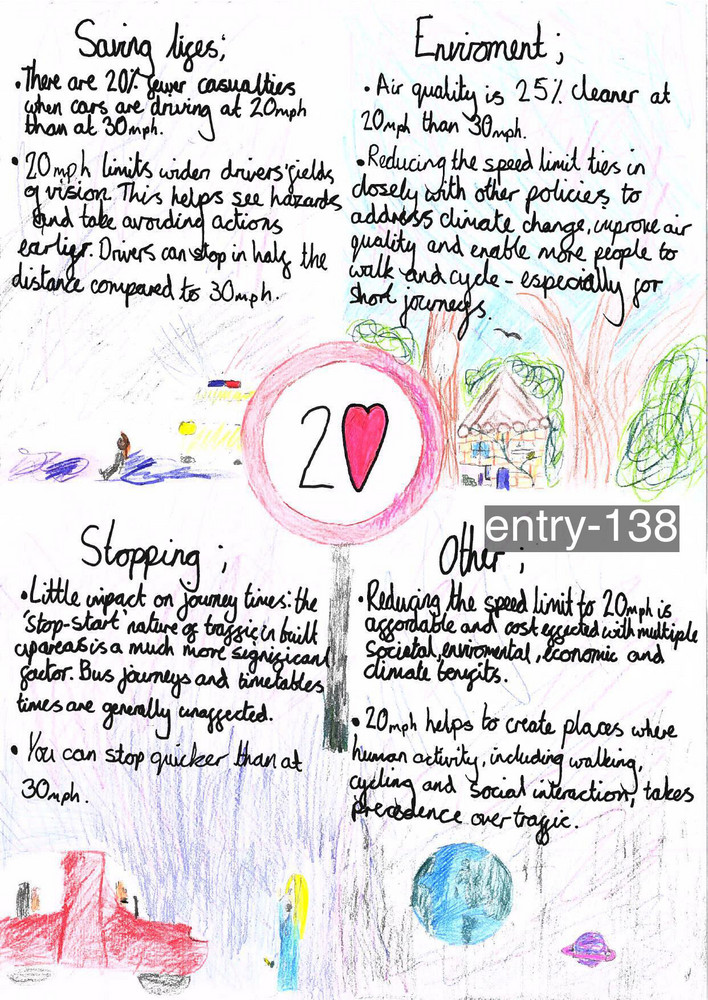 Saving lifes;
• There are 20% fewer casualties
when cars are driving at 20mph
than at 30mph.
• 20mph limits widen drivers' fields
of vision. This helps see hazards
and take avoiding actions
earlier. Drivers can stop in half the
distance compared to 30mph.
Enviroment;
• Air quality is 25% cleaner at
20mph than 30mph.
• Reducing the speed limit ties in
closely with other policies to
address climate change, improve air
quality and enable more people to
walk and cycle - especially for
short journeys.
2
entry-138
Stopping;
• Little impact on journey times: the
'stop-start' nature of traffic in built
up areas is a much more significant
factor. Bus journeys and timetables
times are generally unaffected.
• You can stop quicker than at
30mph.
Other;
• Reducing the speed limit to 20mph is
affordable and cost effected with multiple
societal, enviromental, economic and
climate benifits.
• 20mph helps to create places where
human activity, including walking,
cycling and social interaction, takes
precedence over traffic.